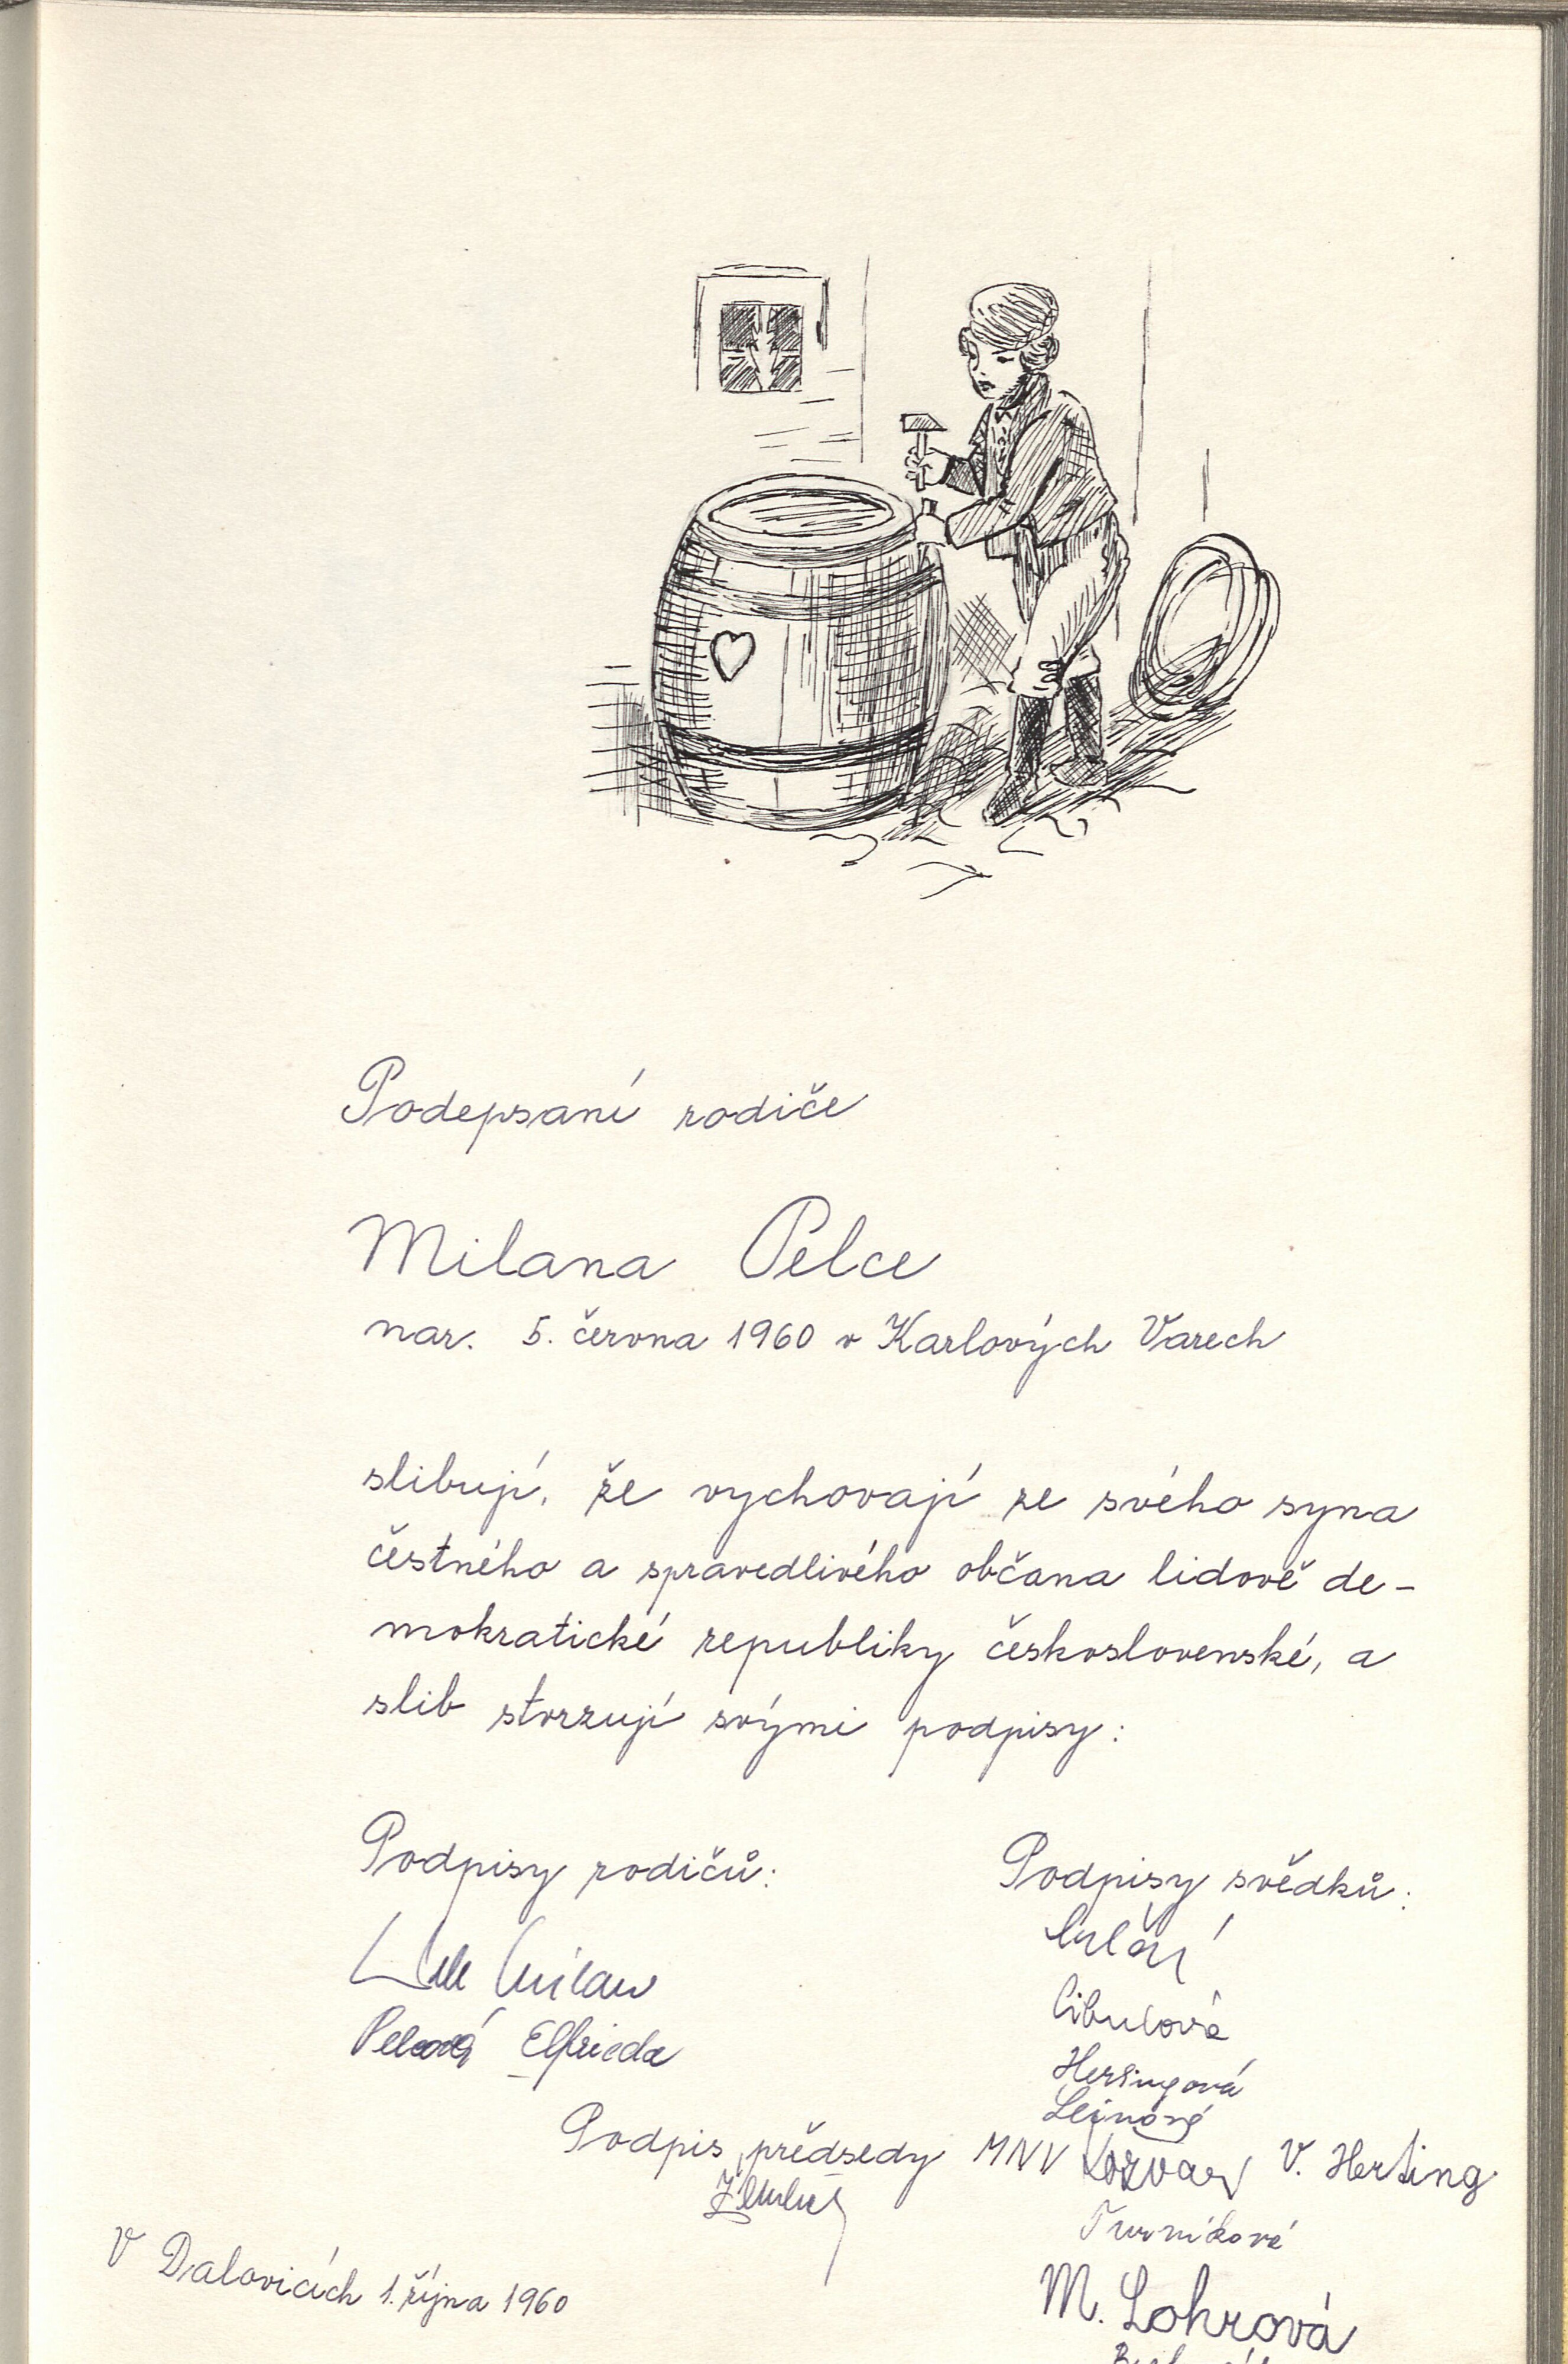 Podepsaní rodiče
Milana Pelce
nar. 5. června 1960 v Karlových Varech
slibují, že vychovají ze svého syna
čestného a spravedlivého občana lidově de-
mokratické republiky československé, a
slib stvrzují svými podpisy:
Podpisy rodičů:
Milan
Pelcová Elfrieda
Podpisy svědků:
Cibulová
Heringová
V. Herting
Turniková
M. Lohrová
Podpis předsedy MNV
V Dalovicích 1. října 1960